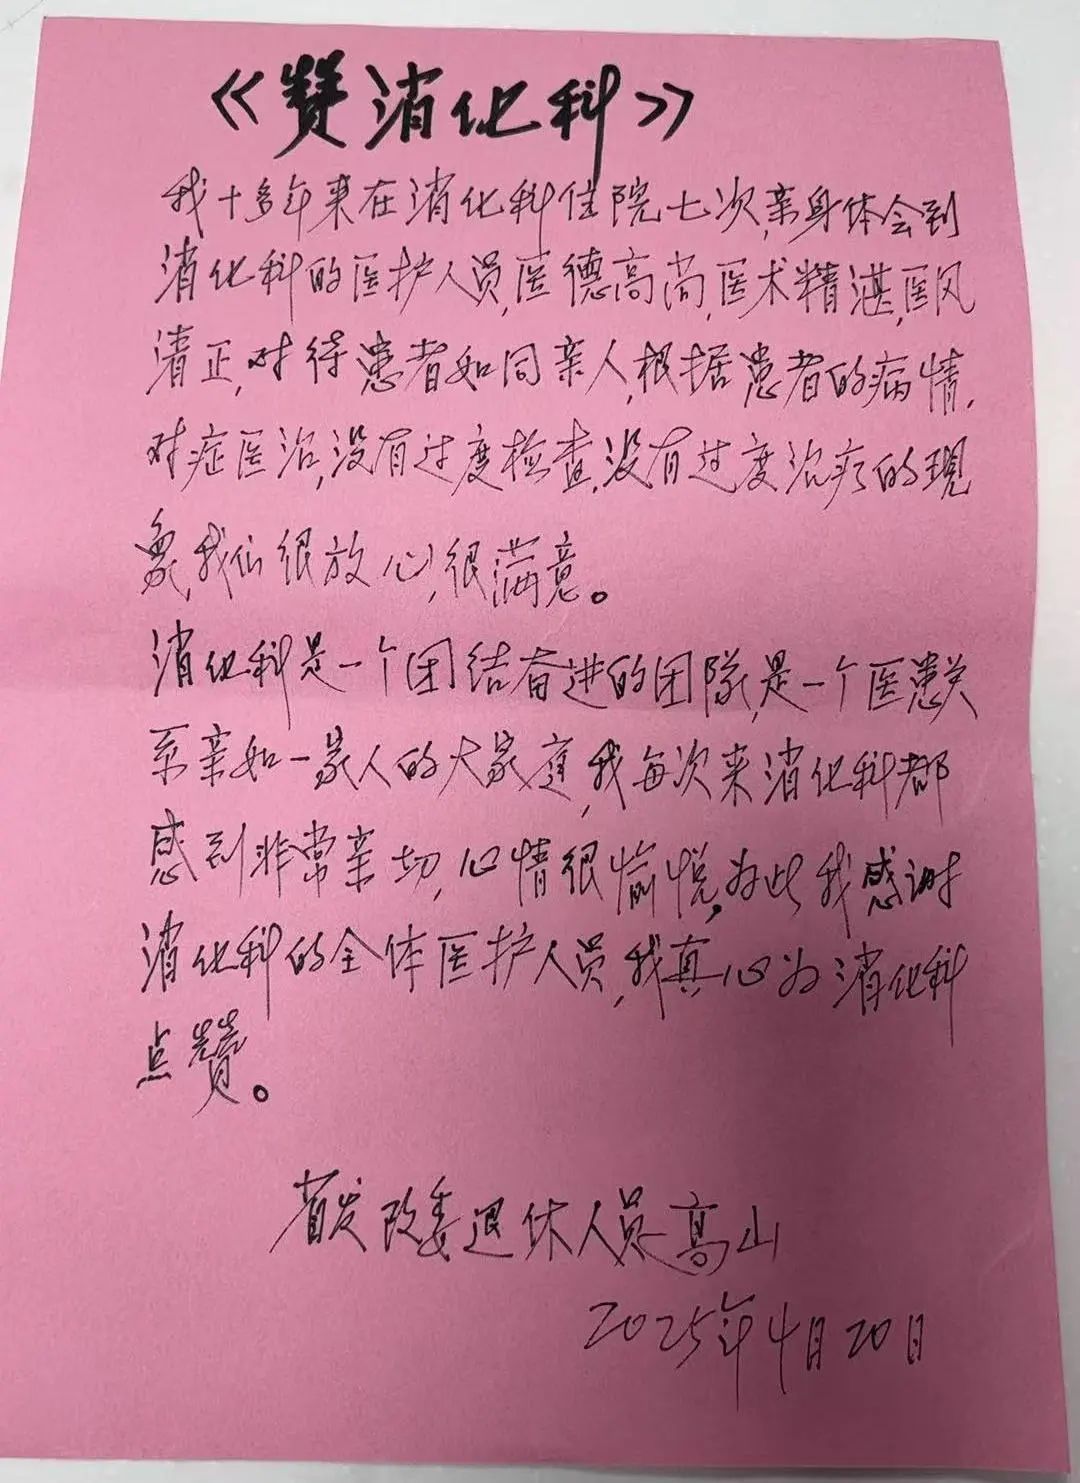 《赞消化科》
我十多年来在消化科住院七次,亲身体会到
消化科的医护人员,医德高尚,医术精湛,医风
清正,对待患者如同亲人,根据患者的病情,
对症医治,没有过度检查,没有过度治疗的现
象,我们很放心,很满意。
消化科是一个团结奋进的团队,是一个医患关
系亲如一家人的大家庭,我每次来消化科都
感到非常亲切,心情很愉悦,为此我感谢
消化科的全体医护人员,我真心为消化科
点赞。
省发改委退休人员高山
2025年4月20日